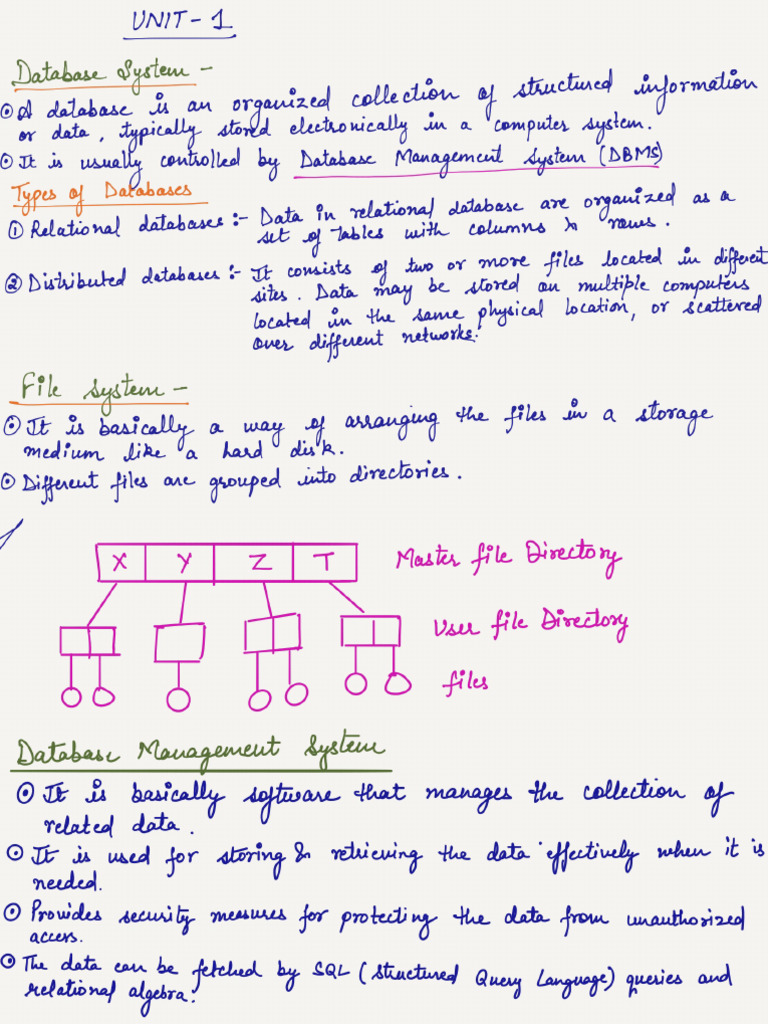 UNIT-1
Database System -
A database is an organized collection of structured information
or data, typically stored electronically in a computer system.
It is usually controlled by Database Management System (DBMS)
Types of Databases
① Relational databases :- Data in relational database are organized as a
set of tables with columns & rows.
② Distributed databases :- It consists of two or more files located in different
sites. Data may be stored on multiple computers
located in the same physical location, or scattered
over different networks.
File system -
It is basically a way of arranging the files in a storage
medium like a hard disk.
Different files are grouped into directories.
X Y Z T Master file Directory
User file Directory
files
Database Management System
It is basically software that manages the collection of
related data.
It is used for storing & retrieving the data effectively when it is
needed.
Provides security measures for protecting the data from unauthorized
access.
The data can be fetched by SQL (Structured Query Language) queries and
relational algebra.